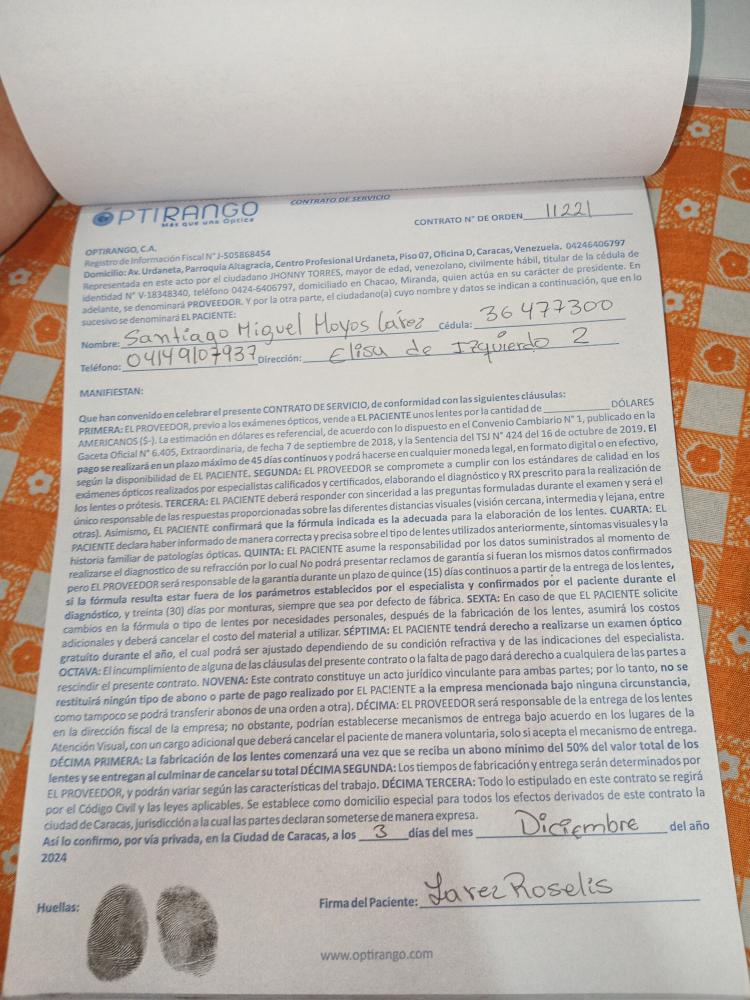 OPTIRANGO
Más que una Óptica
CONTRATO DE SERVICIO
CONTRATO N° DE ORDEN 11221
OPTIRANGO, C.A.
Registro de Información Fiscal N° J-505868454
Domicilio: Av. Urdaneta, Parroquia Altagracia, Centro Profesional Urdaneta, Piso 07, Oficina D, Caracas, Venezuela. 04246406797
Representada en este acto por el ciudadano JHONNY TORRES, mayor de edad, venezolano, civilmente hábil, titular de la cédula de
identidad N° V-18348340, teléfono 0424-6406797, domiciliado en Chacao, Miranda, quien actúa en su carácter de presidente. En
adelante, se denominará PROVEEDOR. Y por la otra parte, el ciudadano(a) cuyo nombre y datos se indican a continuación, que en lo
sucesivo se denominará EL PACIENTE:
Nombre: Santiago Miguel Hoyos Larez Cédula: 36477300
Teléfono: 04149107937 Dirección: Elisa de Izquierdo 2
MANIFIESTAN:
Que han convenido en celebrar el presente CONTRATO DE SERVICIO, de conformidad con las siguientes cláusulas:
PRIMERA: EL PROVEEDOR, previo a los exámenes ópticos, vende a EL PACIENTE unos lentes por la cantidad de ____________ DÓLARES
AMERICANOS ($-). La estimación en dólares es referencial, de acuerdo con lo dispuesto en el Convenio Cambiario N° 1, publicado en la
Gaceta Oficial N° 6.405, Extraordinaria, de fecha 7 de septiembre de 2018, y la Sentencia del TSJ N° 424 del 16 de octubre de 2019. El
pago se realizará en un plazo máximo de 45 días continuos y podrá hacerse en cualquier moneda legal, en formato digital o en efectivo,
según la disponibilidad de EL PACIENTE. SEGUNDA: EL PROVEEDOR se compromete a cumplir con los estándares de calidad en los
exámenes ópticos realizados por especialistas calificados y certificados, elaborando el diagnóstico y RX prescrito para la realización de
los lentes o prótesis. TERCERA: EL PACIENTE deberá responder con sinceridad a las preguntas formuladas durante el examen y será el
único responsable de las respuestas proporcionadas sobre las diferentes distancias visuales (visión cercana, intermedia y lejana, entre
otras). Asimismo, EL PACIENTE confirmará que la fórmula indicada es la adecuada para la elaboración de los lentes. CUARTA: EL
PACIENTE declara haber informado de manera correcta y precisa sobre el tipo de lentes utilizados anteriormente, síntomas visuales y la
historia familiar de patologías ópticas. QUINTA: EL PACIENTE asume la responsabilidad por los datos suministrados al momento de
realizarse el diagnostico de su refracción por lo cual No podrá presentar reclamos de garantía si fueran los mismos datos confirmados
pero EL PROVEEDOR será responsable de la garantía durante un plazo de quince (15) días continuos a partir de la entrega de los lentes,
si la fórmula resulta estar fuera de los parámetros establecidos por el especialista y confirmados por el paciente durante el
diagnóstico, y treinta (30) días por monturas, siempre que sea por defecto de fábrica. SEXTA: En caso de que EL PACIENTE solicite
cambios en la fórmula o tipo de lentes por necesidades personales, después de la fabricación de los lentes, asumirá los costos
adicionales y deberá cancelar el costo del material a utilizar. SÉPTIMA: EL PACIENTE tendrá derecho a realizarse un examen óptico
gratuito durante el año, el cual podrá ser ajustado dependiendo de su condición refractiva y de las indicaciones del especialista.
OCTAVA: El incumplimiento de alguna de las cláusulas del presente contrato o la falta de pago dará derecho a cualquiera de las partes a
rescindir el presente contrato. NOVENA: Este contrato constituye un acto jurídico vinculante para ambas partes; por lo tanto, no se
restituirá ningún tipo de abono o parte de pago realizado por EL PACIENTE a la empresa mencionada bajo ninguna circunstancia,
como tampoco se podrá transferir abonos de una orden a otra). DÉCIMA: EL PROVEEDOR será responsable de la entrega de los lentes
en la dirección fiscal de la empresa; no obstante, podrían establecerse mecanismos de entrega bajo acuerdo en los lugares de la
Atención Visual, con un cargo adicional que deberá cancelar el paciente de manera voluntaria, solo si acepta el mecanismo de entrega.
DÉCIMA PRIMERA: La fabricación de los lentes comenzará una vez que se reciba un abono mínimo del 50% del valor total de los
lentes y se entregan al culminar de cancelar su total DÉCIMA SEGUNDA: Los tiempos de fabricación y entrega serán determinados por
EL PROVEEDOR, y podrán variar según las características del trabajo. DÉCIMA TERCERA: Todo lo estipulado en este contrato se regirá
por el Código Civil y las leyes aplicables. Se establece como domicilio especial para todos los efectos derivados de este contrato la
ciudad de Caracas, jurisdicción a la cual las partes declaran someterse de manera expresa.
Así lo confirmo, por vía privada, en la Ciudad de Caracas, a los 3 días del mes Diciembre del año
2024
Huellas:
Firma del Paciente: Larez Roselis
www.optirango.com